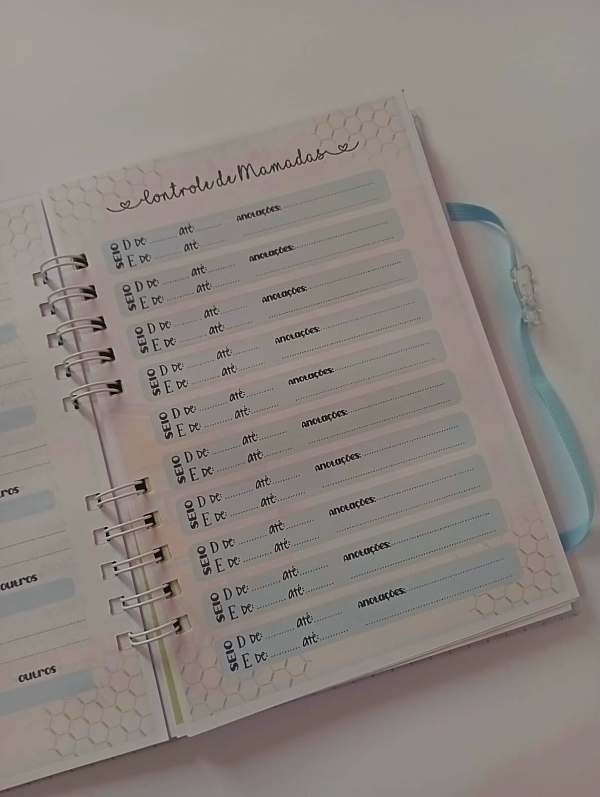 ros
outros
outros
Controle de Mamadas
SEIO
D De: até: anotações:
E De: até:
SEIO
D De: até: anotações:
E De: até:
SEIO
D De: até: anotações:
E De: até:
SEIO
D De: até: anotações:
E De: até:
SEIO
D De: até: anotações:
E De: até:
SEIO
D De: até: anotações:
E De: até:
SEIO
D De: até: anotações:
E De: até:
SEIO
D De: até: anotações:
E De: até:
SEIO
D De: até: anotações:
E De: até:
SEIO
D De: até: anotações:
E De: até: